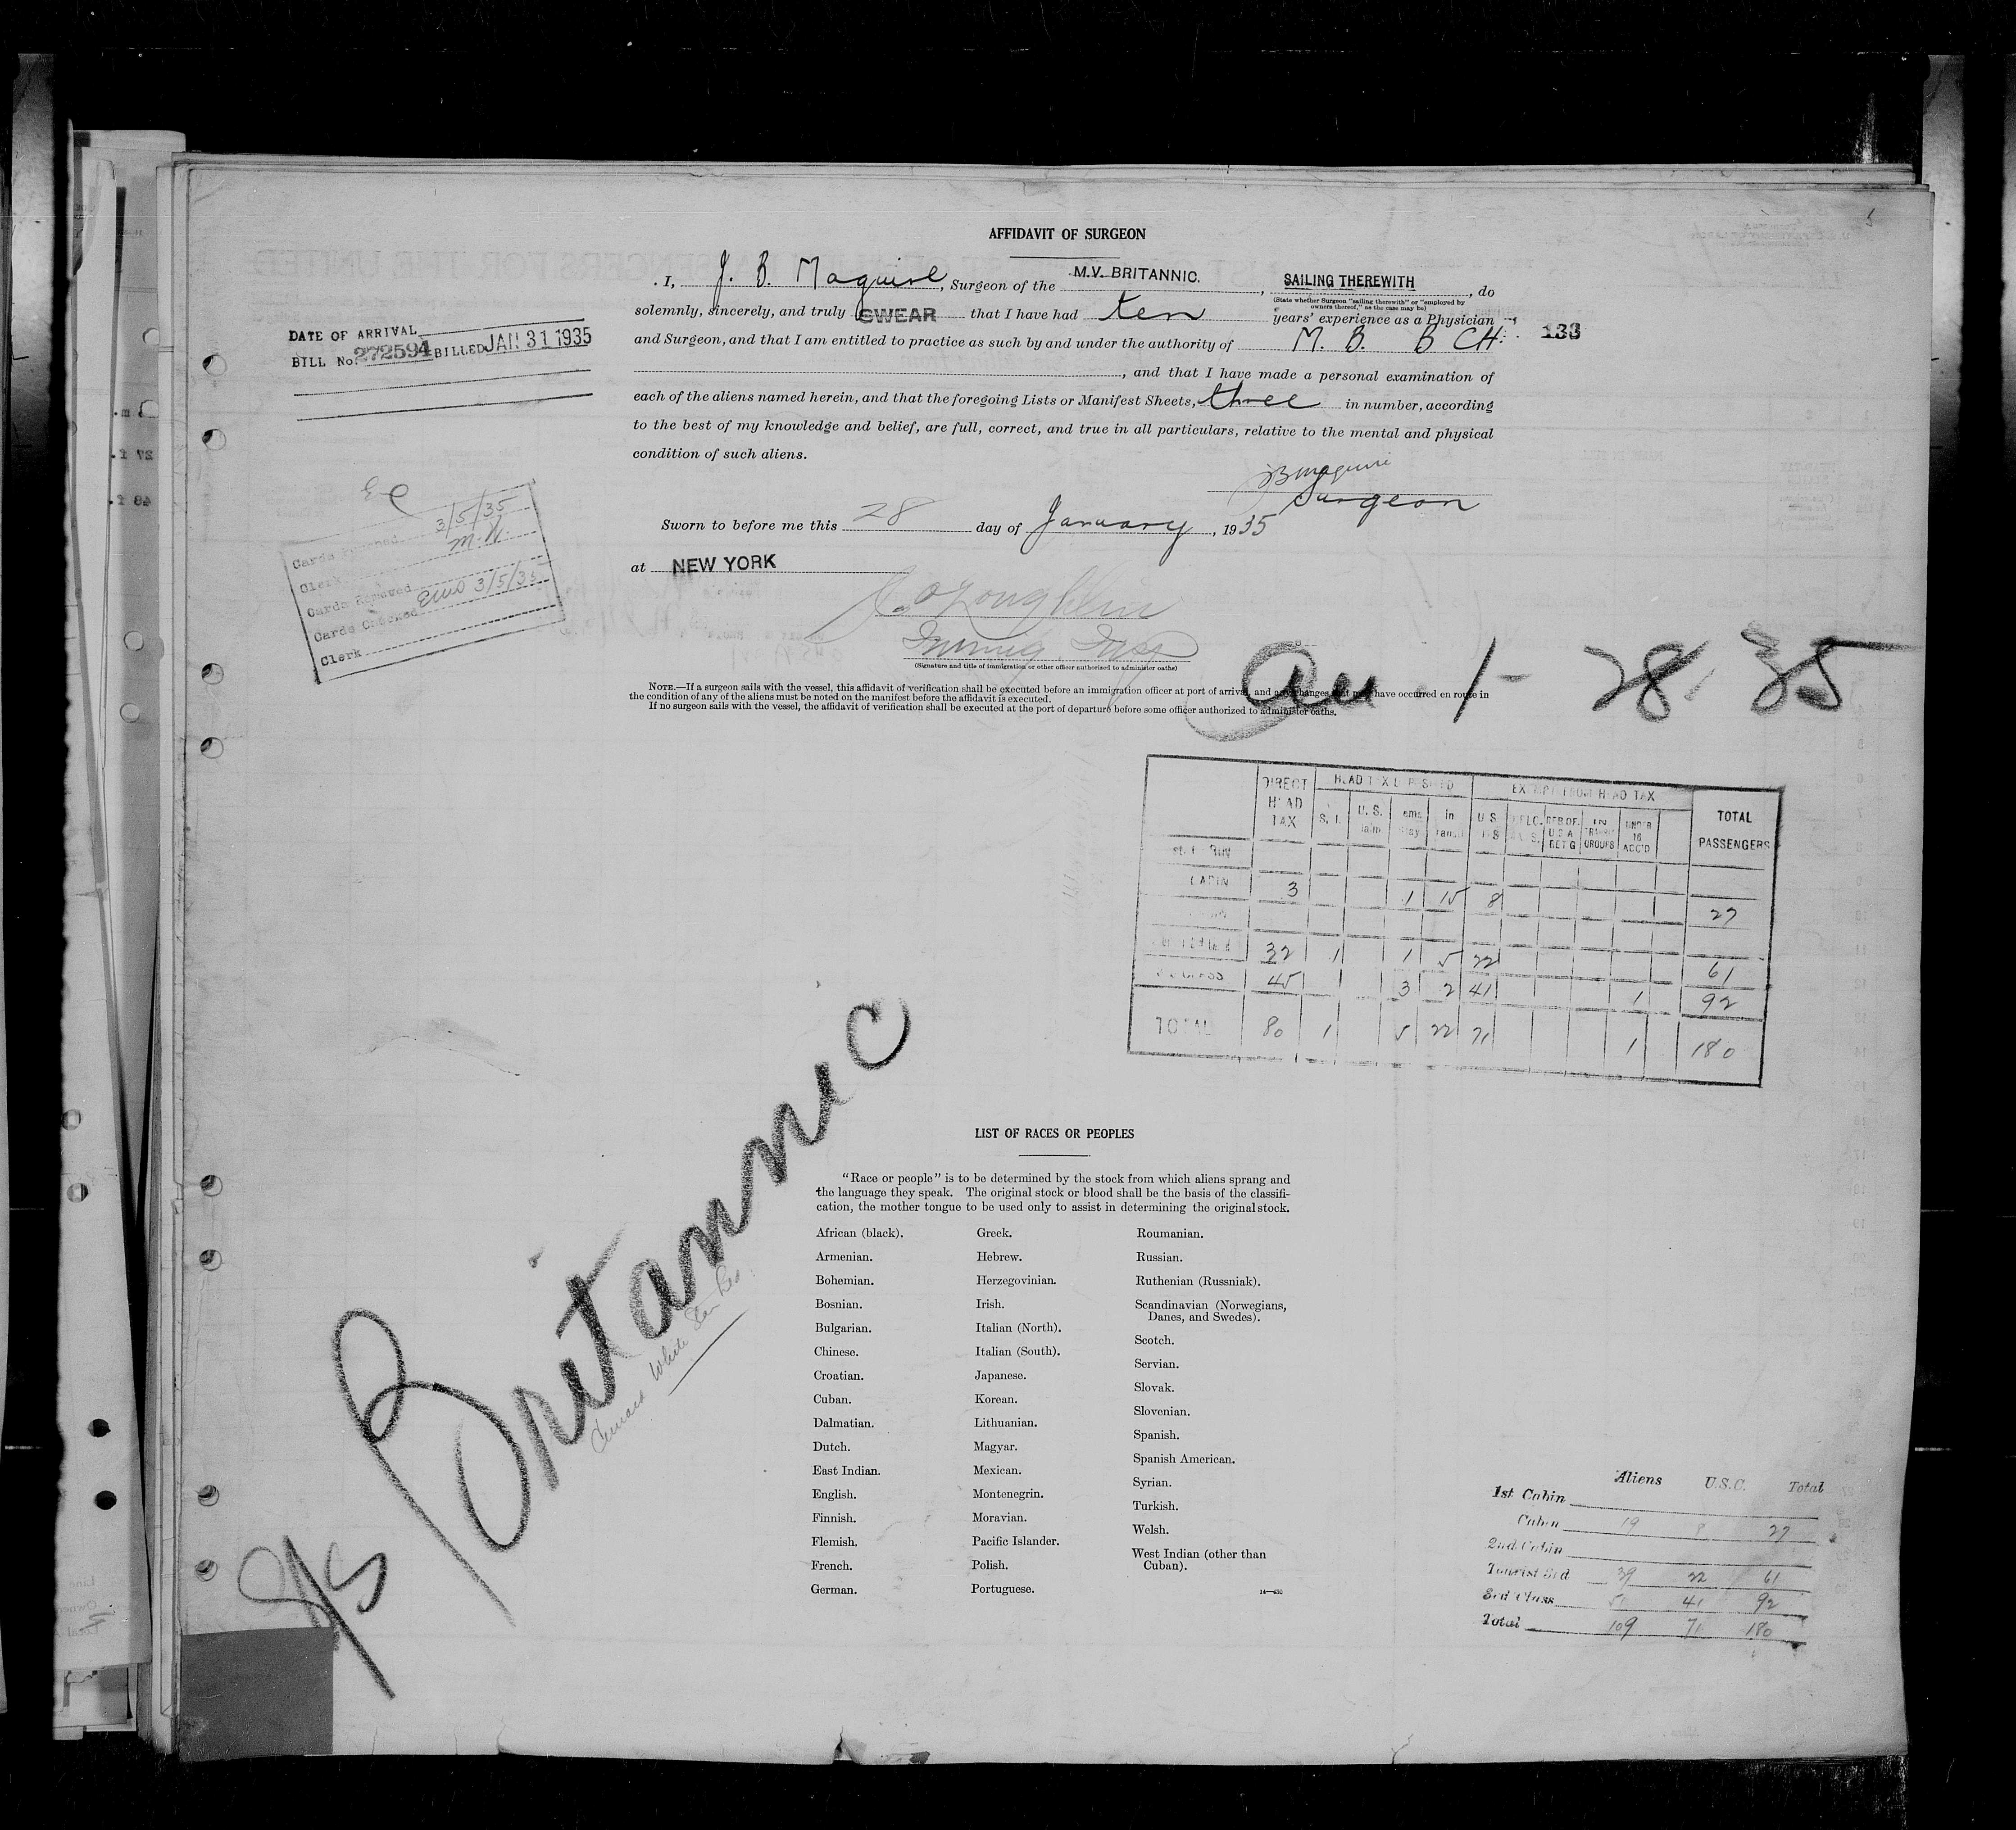 AFFIDAVIT OF SURGEON
I, J. B. Maguire, Surgeon of the M.V. BRITANNIC., SAILING THEREWITH, do
(State whether Surgeon "sailing therewith" or "employed by
owners thereof," as the case may be)
solemnly, sincerely, and truly SWEAR that I have had ten years' experience as a Physician
and Surgeon, and that I am entitled to practice as such by and under the authority of M. B. B CH.
133
, and that I have made a personal examination of
each of the aliens named herein, and that the foregoing Lists or Manifest Sheets, three in number, according
to the best of my knowledge and belief, are full, correct, and true in all particulars, relative to the mental and physical
condition of such aliens.
JB Maguire
Surgeon
Sworn to before me this 28 day of January, 1935
at NEW YORK
Immig. Insp
(Signature and title of immigration or other officer authorized to administer oaths)
NOTE.—If a surgeon sails with the vessel, this affidavit of verification shall be executed before an immigration officer at port of arrival, and any changes that may have occurred en route in
the condition of any of the aliens must be noted on the manifest before the affidavit is executed.
If no surgeon sails with the vessel, the affidavit of verification shall be executed at the port of departure before some officer authorized to administer oaths.
1-28-35
DATE OF ARRIVAL
BILL No. 272594 BILLED JAN 31 1935
Cards Punched 3/5/35
Clerk M.W.
Cards Removed
Cards Checked 3/5/35
Clerk
DIRECT HEAD TAX
EXEMPT FROM HEAD TAX
TOTAL PASSENGERS
S. I. U. S. in U S UNDER 16 ACC'D
CABIN 3 1 15 8 27
32 1 1 5 22 61
CLASS 45 3 2 41 1 92
TOTAL 80 1 5 22 71 1 180
S/S Britannic
Cunard White Star
LIST OF RACES OR PEOPLES
"Race or people" is to be determined by the stock from which aliens sprang and
the language they speak. The original stock or blood shall be the basis of the classifi-
cation, the mother tongue to be used only to assist in determining the original stock.
African (black).
Armenian.
Bohemian.
Bosnian.
Bulgarian.
Chinese.
Croatian.
Cuban.
Dalmatian.
Dutch.
East Indian.
English.
Finnish.
Flemish.
French.
German.
Greek.
Hebrew.
Herzegovinian.
Irish.
Italian (North).
Italian (South).
Japanese.
Korean.
Lithuanian.
Magyar.
Mexican.
Montenegrin.
Moravian.
Pacific Islander.
Polish.
Portuguese.
Roumanian.
Russian.
Ruthenian (Russniak).
Scandinavian (Norwegians,
Danes, and Swedes).
Scotch.
Servian.
Slovak.
Slovenian.
Spanish.
Spanish American.
Syrian.
Turkish.
Welsh.
West Indian (other than
Cuban).
Aliens U.S.C. Total
1st Cabin
Cabin 19 8 27
2nd Cabin
Tourist 3rd 39 22 61
3rd Class 51 41 92
Total 109 71 180